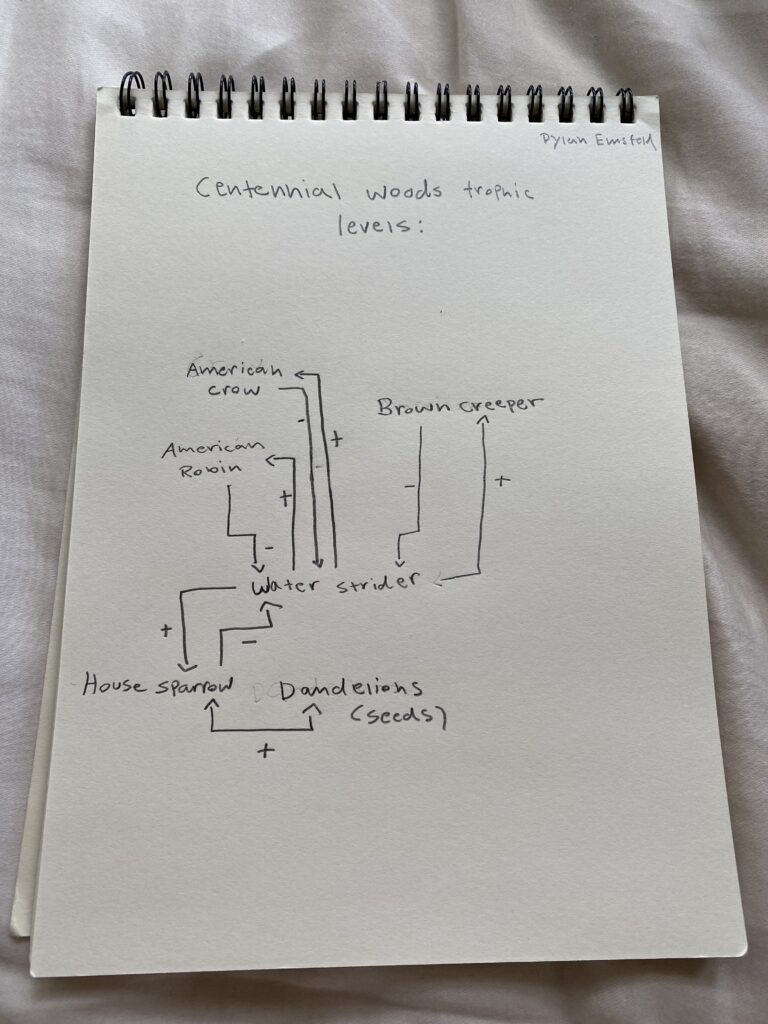 Dylan Emsfold
Centennial woods trophic
levels:
American
crow
-
+
Brown creeper
American
Robin
+
-
+
-
-
Water strider
+
-
House sparrow
Dandelions
(seeds)
+